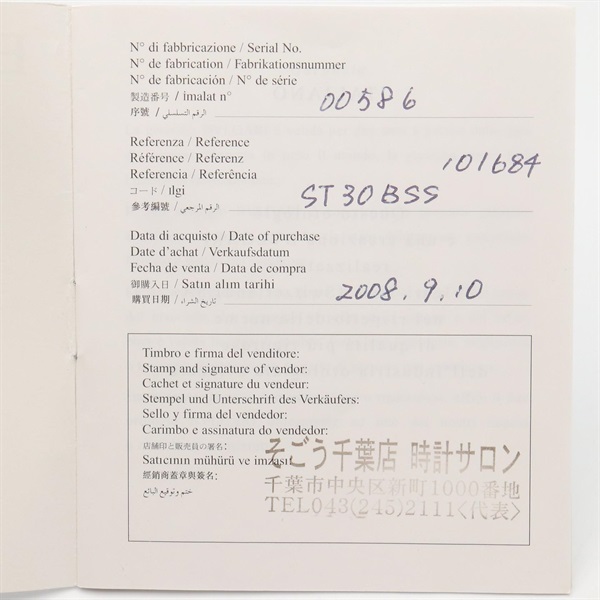 N° di fabbricazione / Serial No.
N° de fabrication / Fabrikationsnummer
N° de fabricación / N° de série
製造番号 / ímalat n°
序號 / الرقم التسلسلي
00586
Referenza / Reference
Référence / Referenz
Referencia / Referência
コード / Ilgi
參考編號 / الرقم المرجعي
101684
ST30BSS
Data di acquisto / Date of purchase
Date d'achat / Verkaufsdatum
Fecha de venta / Data de compra
御購入日 / Satın alim tarihi
購買日期 / تاريخ الشراء
2008.9.10
Timbro e firma del venditore:
Stamp and signature of vendor:
Cachet et signature du vendeur:
Stempel und Unterschrift des Verkäufers:
Sello y firma del vendedor:
Carimbo e assinatura do vendedor:
店舗印と販売員の署名:
Satıcının mühürü ve imzası:
經銷商蓋章與簽名:
ختم وتوقيع البائع
そごう千葉店 時計サロン
千葉市中央区新町1000番地
TEL043(245)2111<代表>